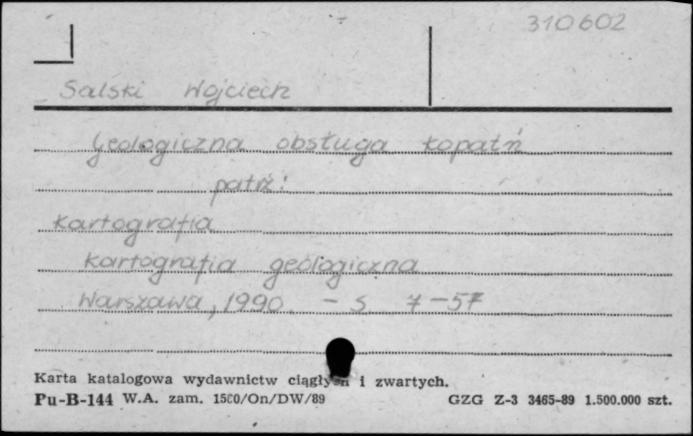 310602
Salski Wojciech
Geologiczna obsługa kopalń
patrz:
Kartografia
Kartografia geologiczna
Warszawa, 1990. - s 7-57
Karta katalogowa wydawnictw ciągłych i zwartych.
Pu-B-144 W.A. zam. 1500/On/DW/89 GZG Z-3 3465-89 1.500.000 szt.